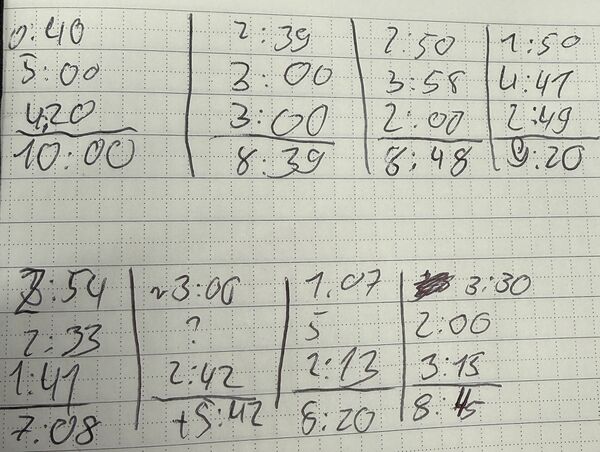 0:40 2:39 2:50 1:50
5:00 3:00 3:58 4:41
4,20 3:00 2:00 2:49
10:00 8:39 8:48 9:20
2:54 ~3:00 1.07 3:30
2:33 ? 5 2:00
1:41 2:42 2:13 3:15
7:08 +5:42 8:20 8:45